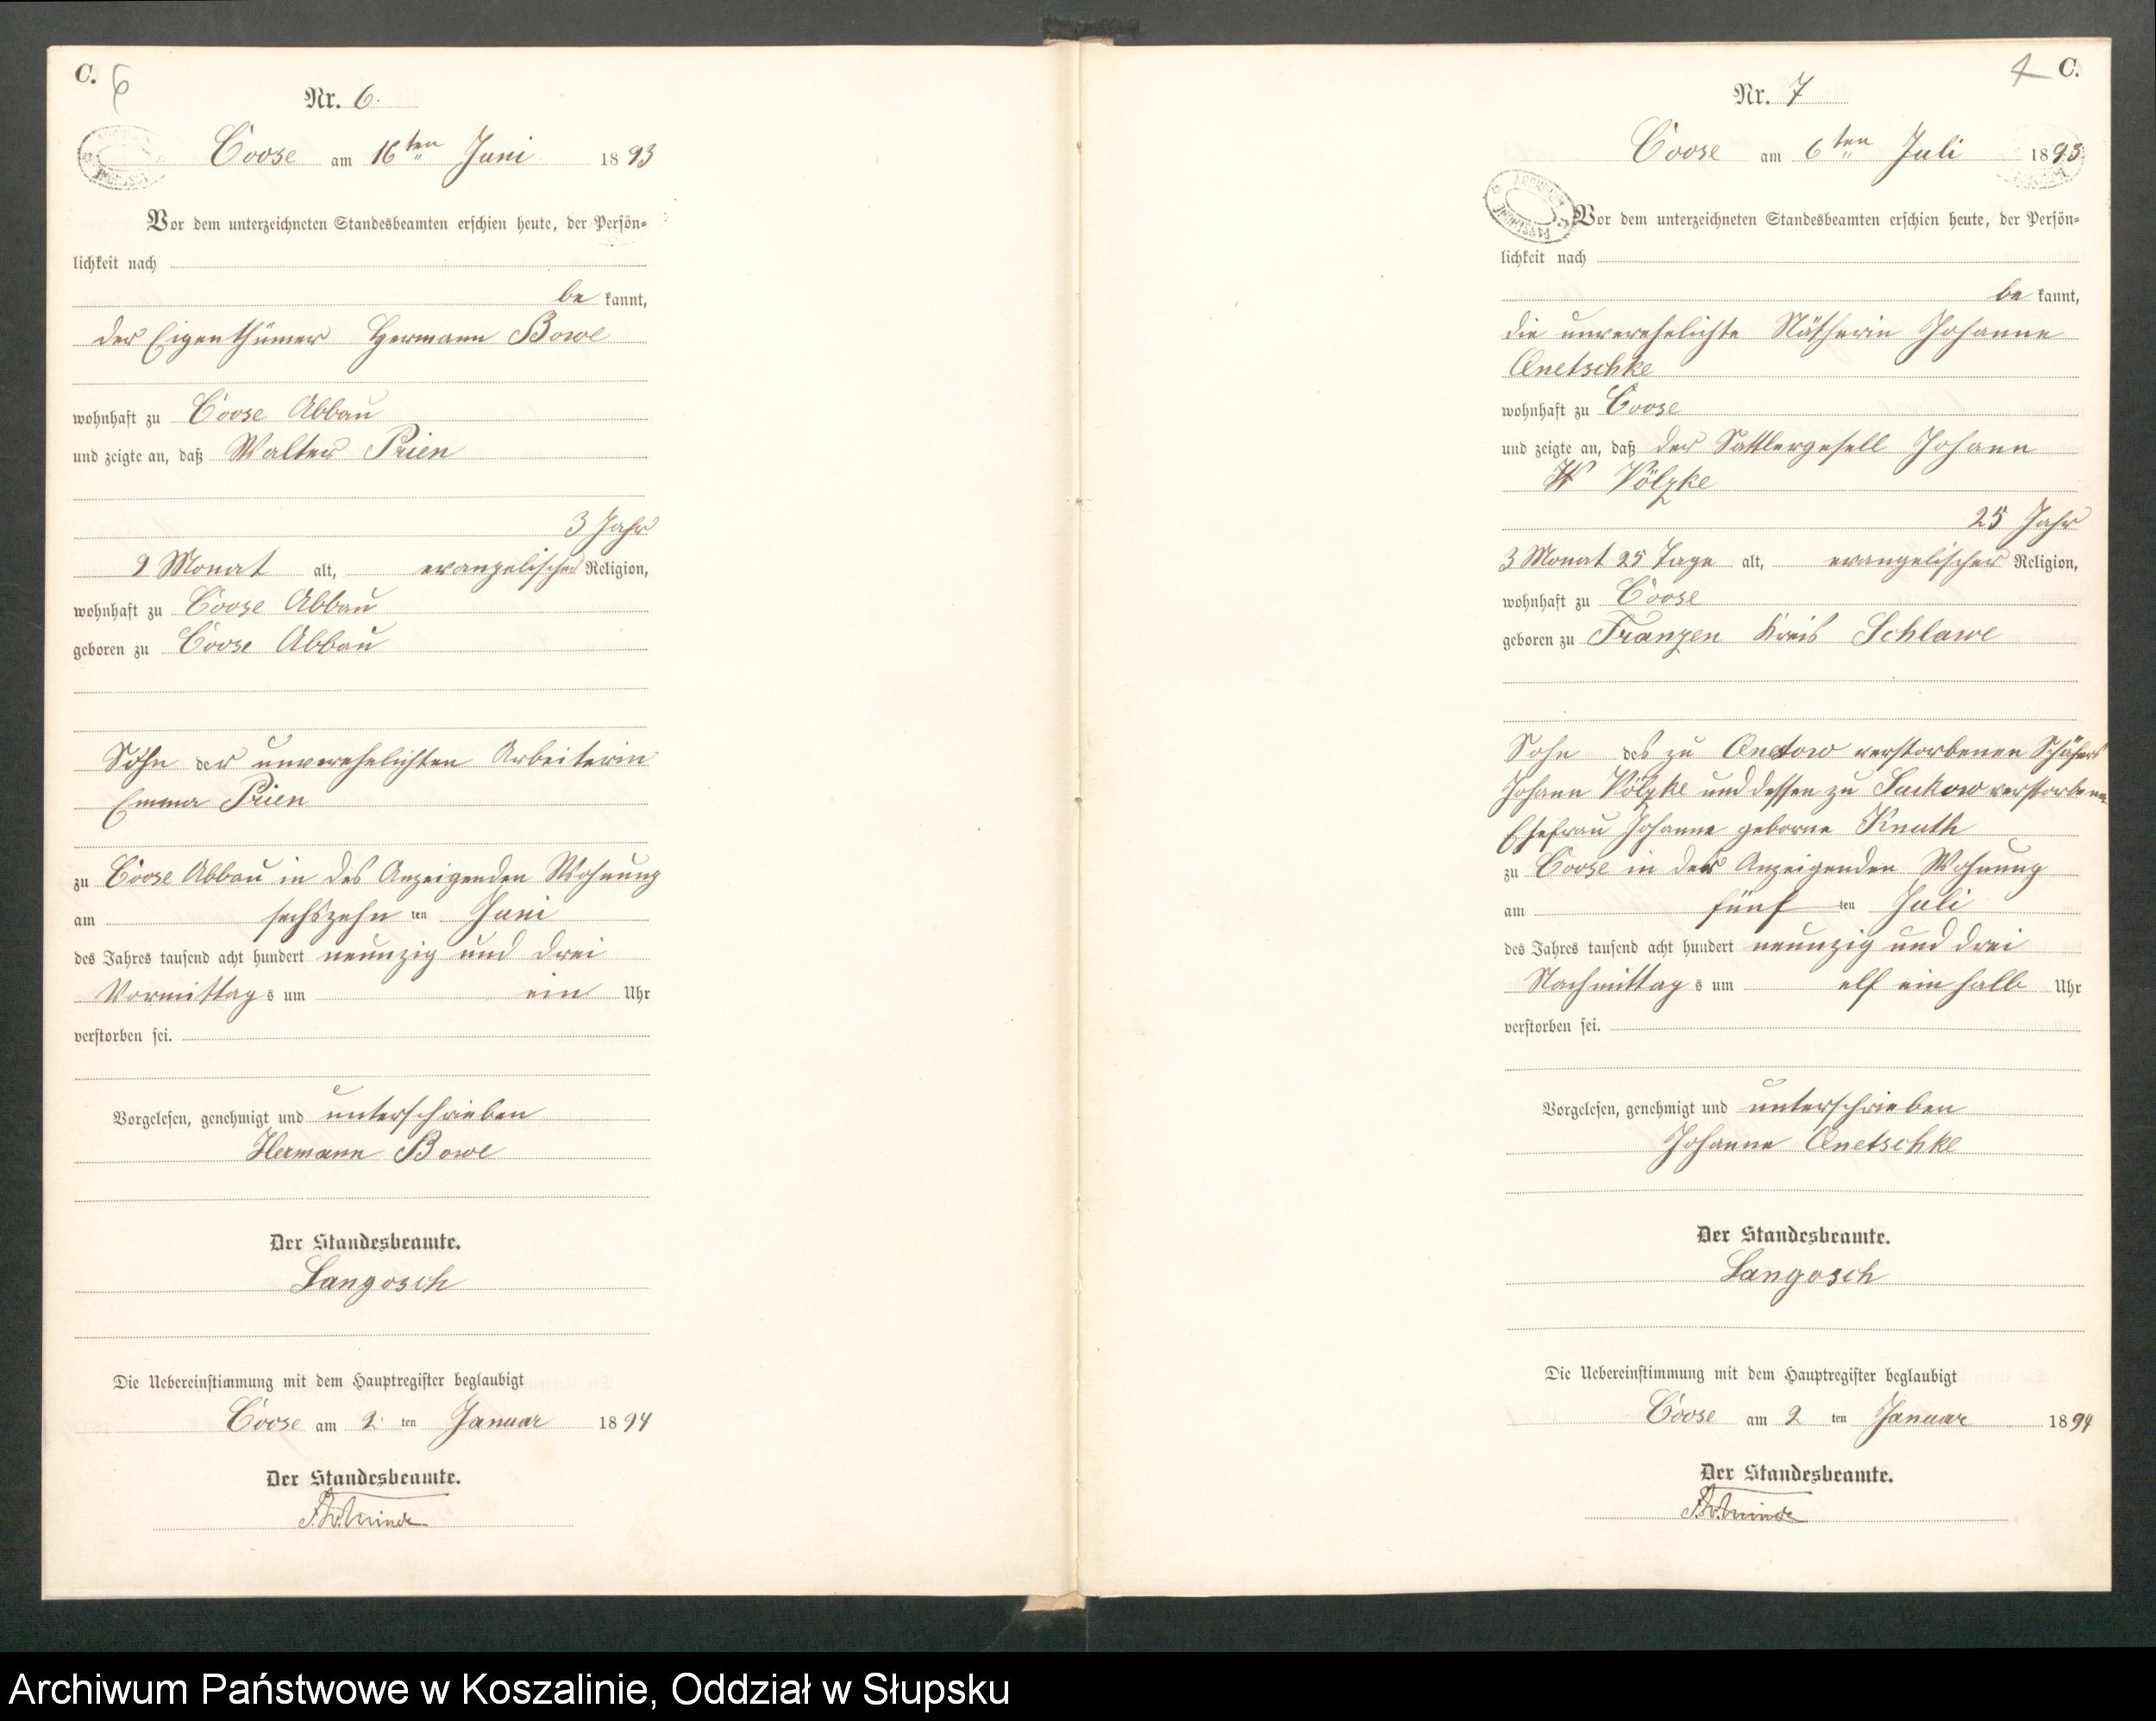 C.
6
Nr. 6.
Coose am 16ten Juni 1893
Vor dem unterzeichneten Standesbeamten erschien heute, der Persön-
lichkeit nach
be kannt,
der Eigenthümer Hermann Bowe
wohnhaft zu Coose Abbau
und zeigte an, daß Walter Prien
3 Jahr
9 Monat alt, evangelischer Religion,
wohnhaft zu Coose Abbau
geboren zu Coose Abbau
Sohn der unverehelichten Arbeiterin
Emma Prien
zu Coose Abbau in des Anzeigenden Wohnung
am sechszehn ten Juni
des Jahres tausend acht hundert neunzig und drei
Vormittag s um ein Uhr
verstorben sei.
Vorgelesen, genehmigt und unterschrieben
Hermann Bowe
Der Standesbeamte.
Langosch
Die Uebereinstimmung mit dem Hauptregister beglaubigt
Coose am 2 ten Januar 1894
Der Standesbeamte.
C.
Nr. 7
Coose am 6ten Juli 1893
Vor dem unterzeichneten Standesbeamten erschien heute, der Persön-
lichkeit nach
be kannt,
die unverehelichte Nätherin Johanne
Anetschke
wohnhaft zu Coose
und zeigte an, daß der Sattlergesell Johann
Völzke
25 Jahr
3 Monat 25 Tage alt, evangelischer Religion,
wohnhaft zu Coose
geboren zu Franzen Kreis Schlawe
Sohn des zu verstorbenen Schäfers
Johann Völzke und dessen zu Suckow verstorbenen
Ehefrau Johanne geborne Knuth
zu Coose in der Anzeigenden Wohnung
am fünf ten Juli
des Jahres tausend acht hundert neunzig und drei
Nachmittag s um elf ein halb Uhr
verstorben sei.
Vorgelesen, genehmigt und unterschrieben
Johanne Anetschke
Der Standesbeamte.
Langosch
Die Uebereinstimmung mit dem Hauptregister beglaubigt
Coose am 2 ten Januar 1894
Der Standesbeamte.
Archiwum Państwowe w Koszalinie, Oddział w Słupsku